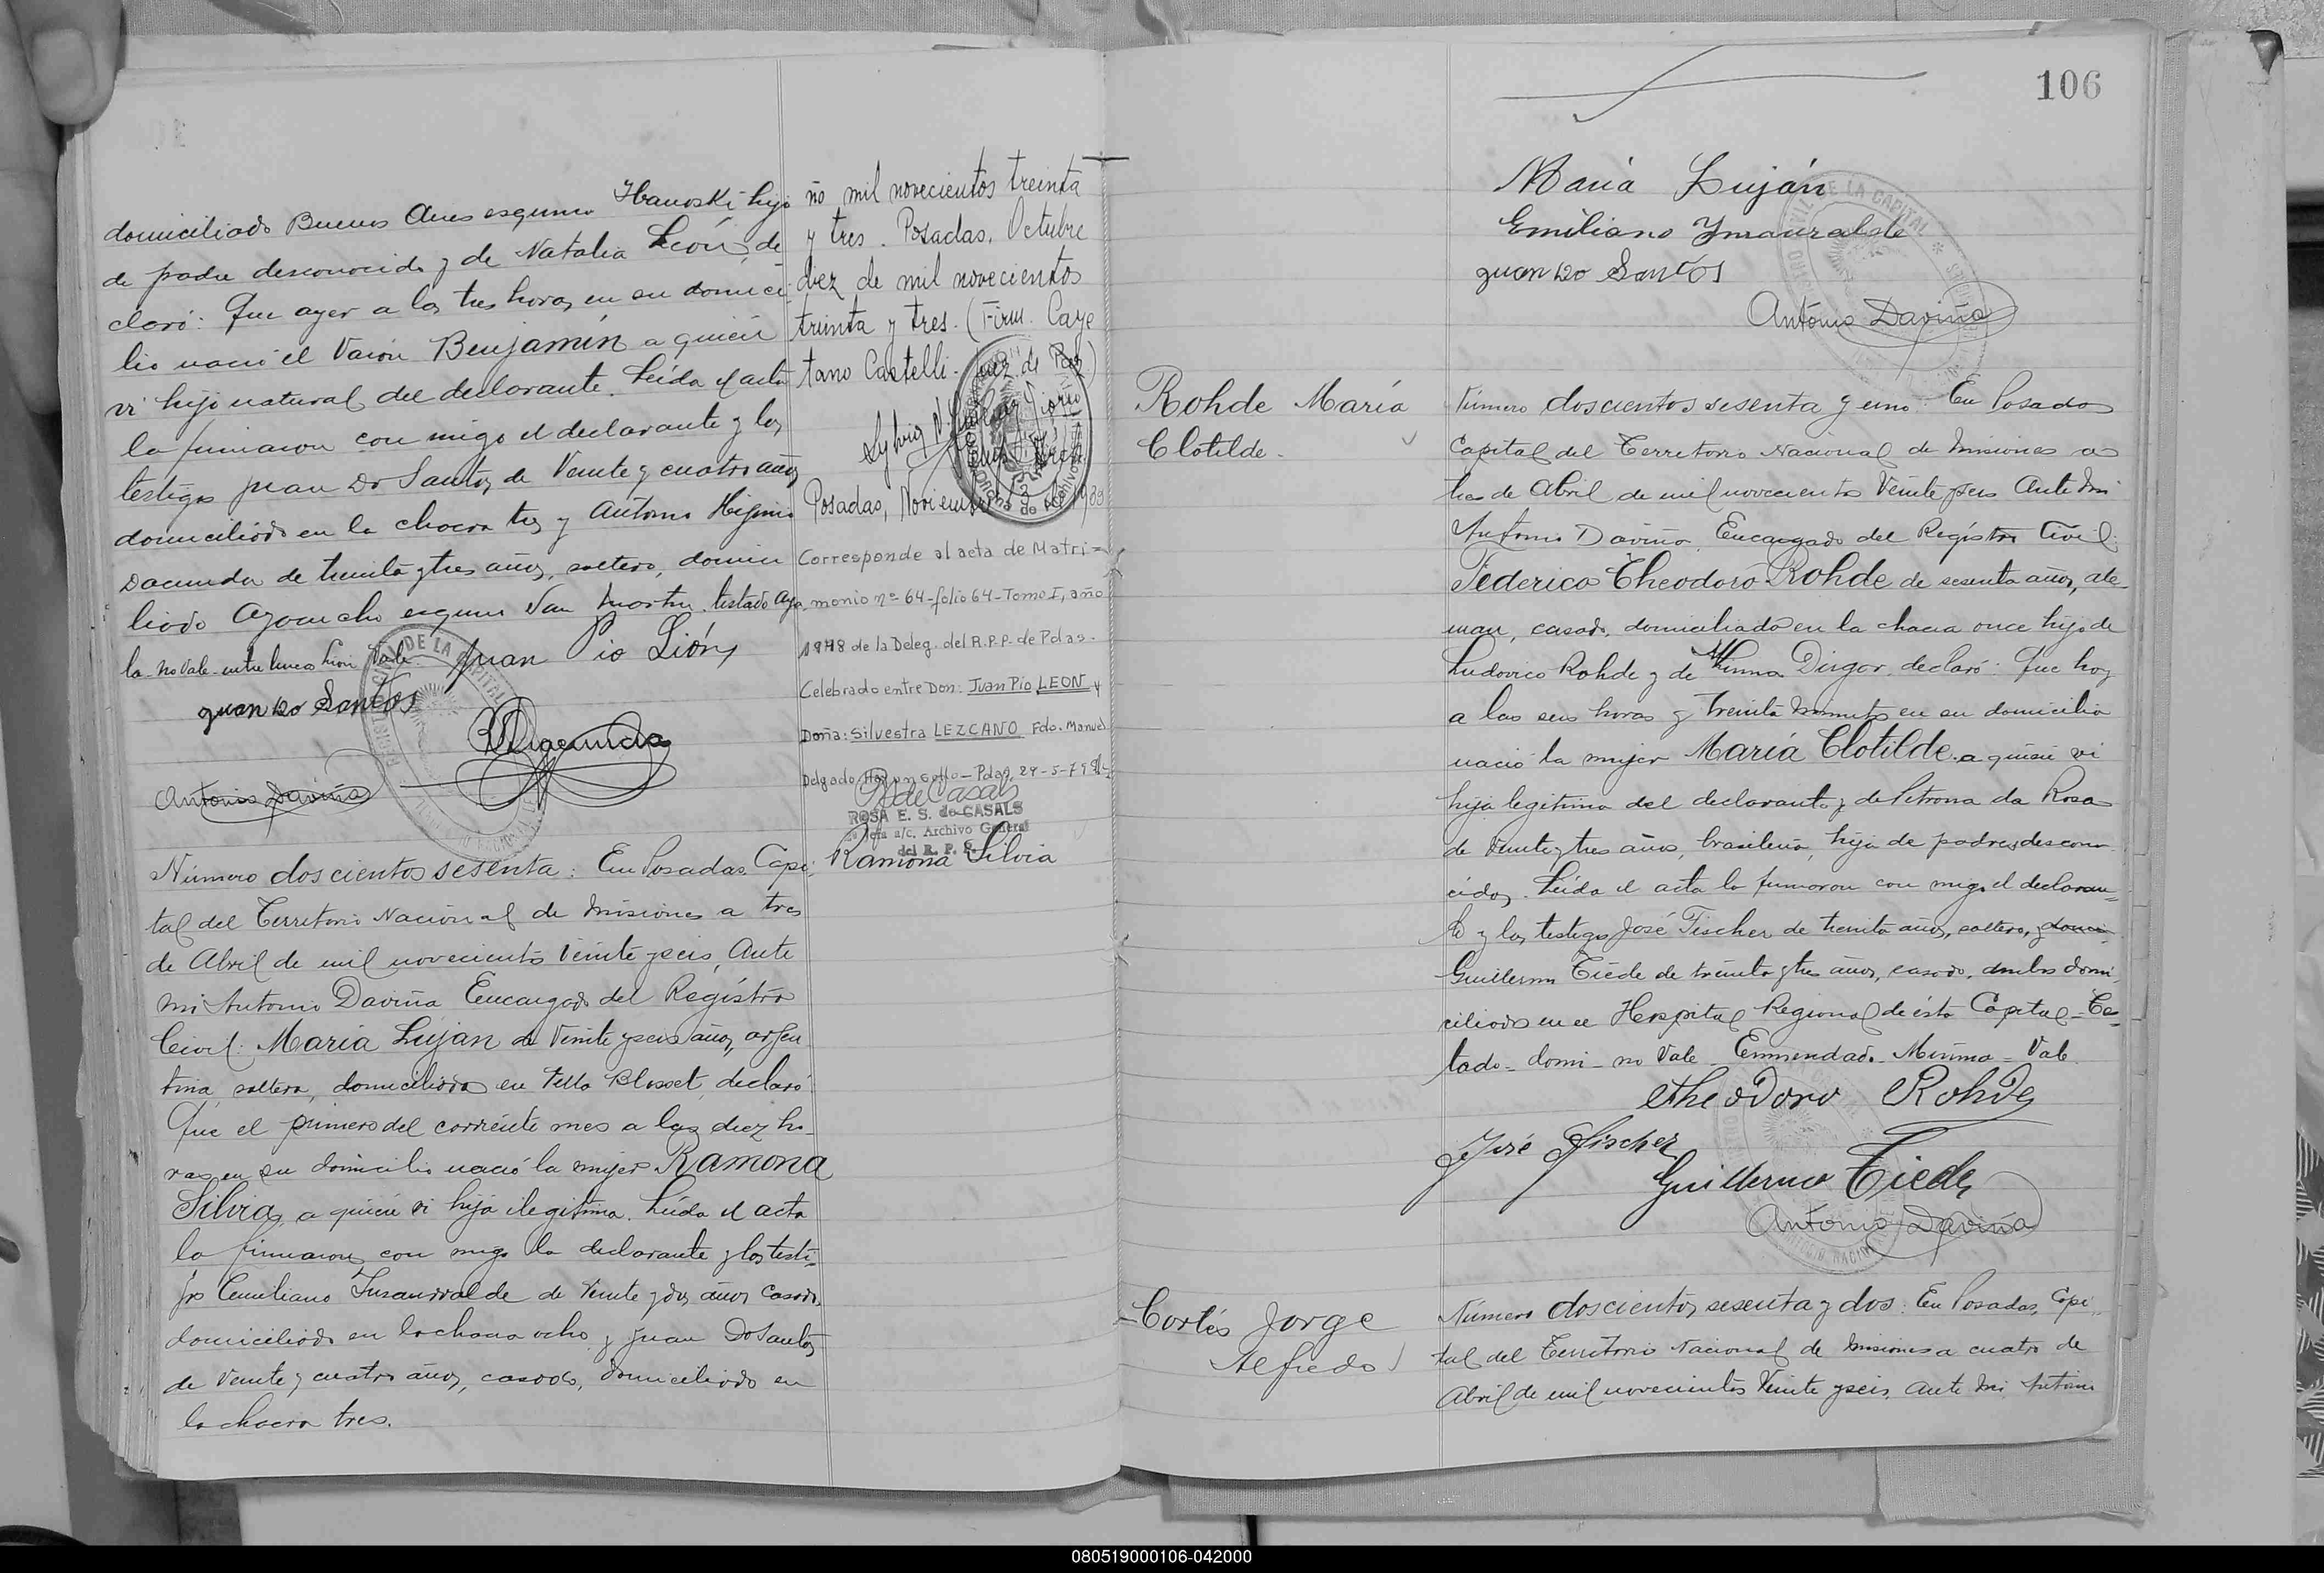 domiciliado Buenos Aires esquina Ibanoski hijo
de padre desconocido y de Natalia León, de
claró: Que ayer a las tres horas en su domici
lio nació el varón Benjamín a quien
vi hijo natural del declarante. Leída el acta
la firmaron con migo el declarante y los
testigos Juan Do Santos, de veinte y cuatro años
domiciliado en la chacra tres y Antonio Higinio
de treinta y tres años, soltero, domici
liado Ayacucho esquina San Martin. testado
la no vale. entre lineas León Vale.
Juan Pio León
Juan Do Santos
Antonio Daviña
ño mil novecientos treinta
y tres. Posadas, Octubre
diez de mil novecientos
treinta y tres. (Firm. Caye
tano Castelli. Juez de Paz)
Posadas, Noviembre
Corresponde al acta de Matri=
monio nº 64-folio 64-Tomo I, año
1978 de la Deleg. del R.P.P. de Pdas.
Celebrado entre Don: Juan Pío LEON y
Doña: Silvestra LEZCANO Fdo. Manuel
Delgado
ROSA E. S. de CASALS
Jefa a/c. Archivo General
del R. P. P.
Ramona Silvia
Número doscientos sesenta: En Posadas Capi
tal del Territorio Nacional de Misiones a tres
de Abril de mil novecientos veinte y seis, Ante
mi Antonio Daviña Encargado del Registro
Civil: María Luján de veinte y seis años, argen
tina, soltera, domiciliada en Villa Blosset, declaró:
Que el primero del corriente mes a las diez ho
ras en su domicilio nació la mujer Ramona
Silvia, a quien vi hija ilegitima. Leída el acta
la firmaron con migo la declarante y los testi=
gos Emiliano Insaurralde de veinte y dos años casado,
domiciliado en la chacra ocho y Juan Do Santos
de veinte y cuatro años, casado, domiciliado en
la chacra tres.
106
María Luján
Emiliano Ynsauralde
Juan Do Santos
Antonio Daviña
Rohde María
Clotilde.
Número doscientos sesenta y uno: En Posadas
Capital del Territorio Nacional de Misiones a
tres de Abril de mil novecientos veinte y seis Ante mi
Antonio Daviña Encargado del Registro Civil:
Federico Theodoro Rohde de sesenta años, ale
man, casado, domiciliado en la chacra once hijo de
Ludovico Rohde y de Minna Dirgor, declaró: Que hoy
a las seis horas y treinta minutos en su domicilio
nació la mujer María Clotilde a quien vi
hija legitima del declarante y de Petrona da Rosa
de veinte y tres años, brasileña, hija de padres descono
cidos. Leída el acta la firmaron con migo el declaran=
te y los testigos José Fischer de treinta años, soltero, y domi
Guillermo Tiede de treinta y tres años, casado, ambos domi
ciliados en el Hospital Regional de ésta Capital - Tes
tado - domi - no vale - Enmendado - Minna - Vale.
Theodoro Rohde
José Fischer
Guillermo Tiede
Antonio Daviña
Cortés Jorge
Alfredo
Número doscientos sesenta y dos: En Posadas, Capi
tal del Territorio Nacional de Misiones a cuatro de
Abril de mil novecientos veinte y seis, Ante mi Antonio
080519000106-042000